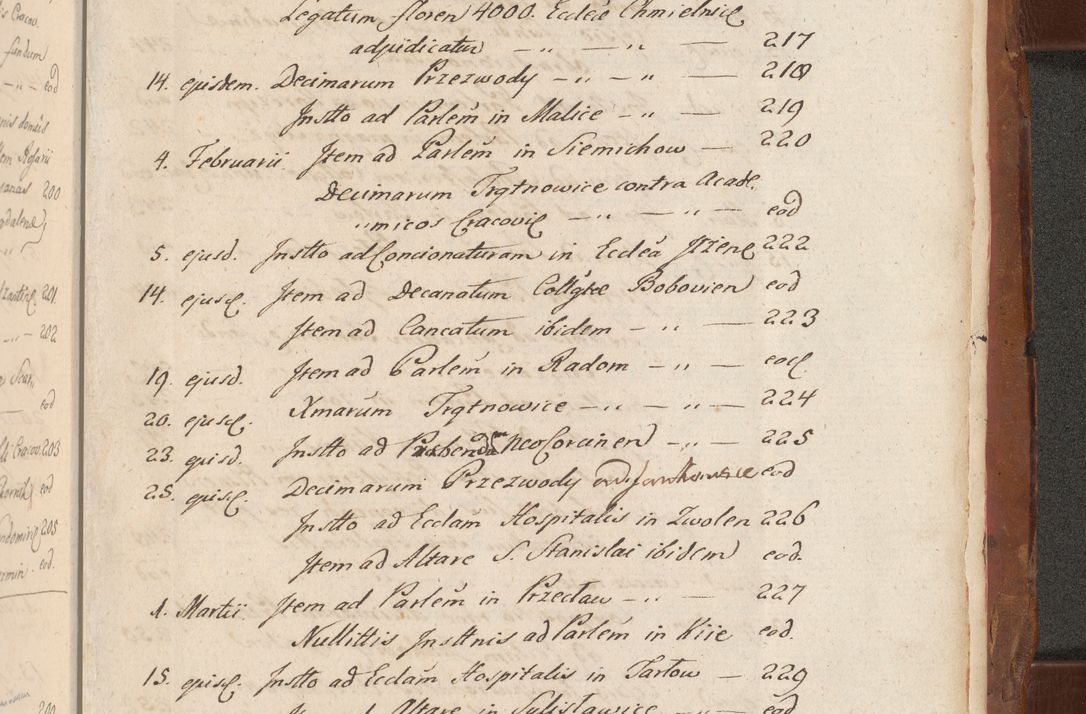 Legatum floren 4000. Eccleæ Chmielnicę
adjudicatur — „ — „ — 217
14. ejusdem. Decimarum Przezwody — „ — „ — 218
Jnstto ad Parlem in Malice — „ — 219
4. Februarii Jtem ad Parlem in Siemichow — 220
Decimarum Trątnowice contra Acade,
„micos Cracovię — „ — „ — eod
5. ejusd. Jnstto ad Concionaturam in Eccleã Jżżenę 222
14. ejusd. Jtem ad Decanatum Collgtee Bobovien eod
Jtem ad Cancatum ibidem — „ — 223
19. ejusd. Jtem ad Parlem in Radom — „ — eod
20. ejusd. Xmarum Trątnowice — „ — „ — 224
23. ejusd. Jnstto ad Præbendā Neo Corcinen — „ — 225
25. ejusd. Decimarum Przezwody eod
Jnstto ad Ecclam Hospitalis in Zwolen 226
Jtem ad Altare S. Stanislai ibidem eod.
1. Martii Jtem ad Parlem in Przecław — „ — 227
Nullittis Jnsttnis ad Parlem in Kiie eod.
15. ejusd. Jnstto ad Ecclam Hospitalis in Tarłow — 229
Altare in Sulisławice — „ — eod
is Cracov.
fundum
— „ — eod
nis domûs
200
201
— „ — 202
eod
Cracov. 203
eod
205
eod.
200